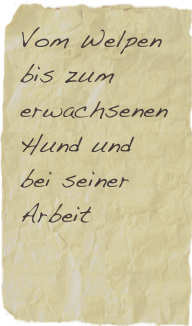 Vom Welpen
bis zum
erwachsenen
Hund und
bei seiner
Arbeit